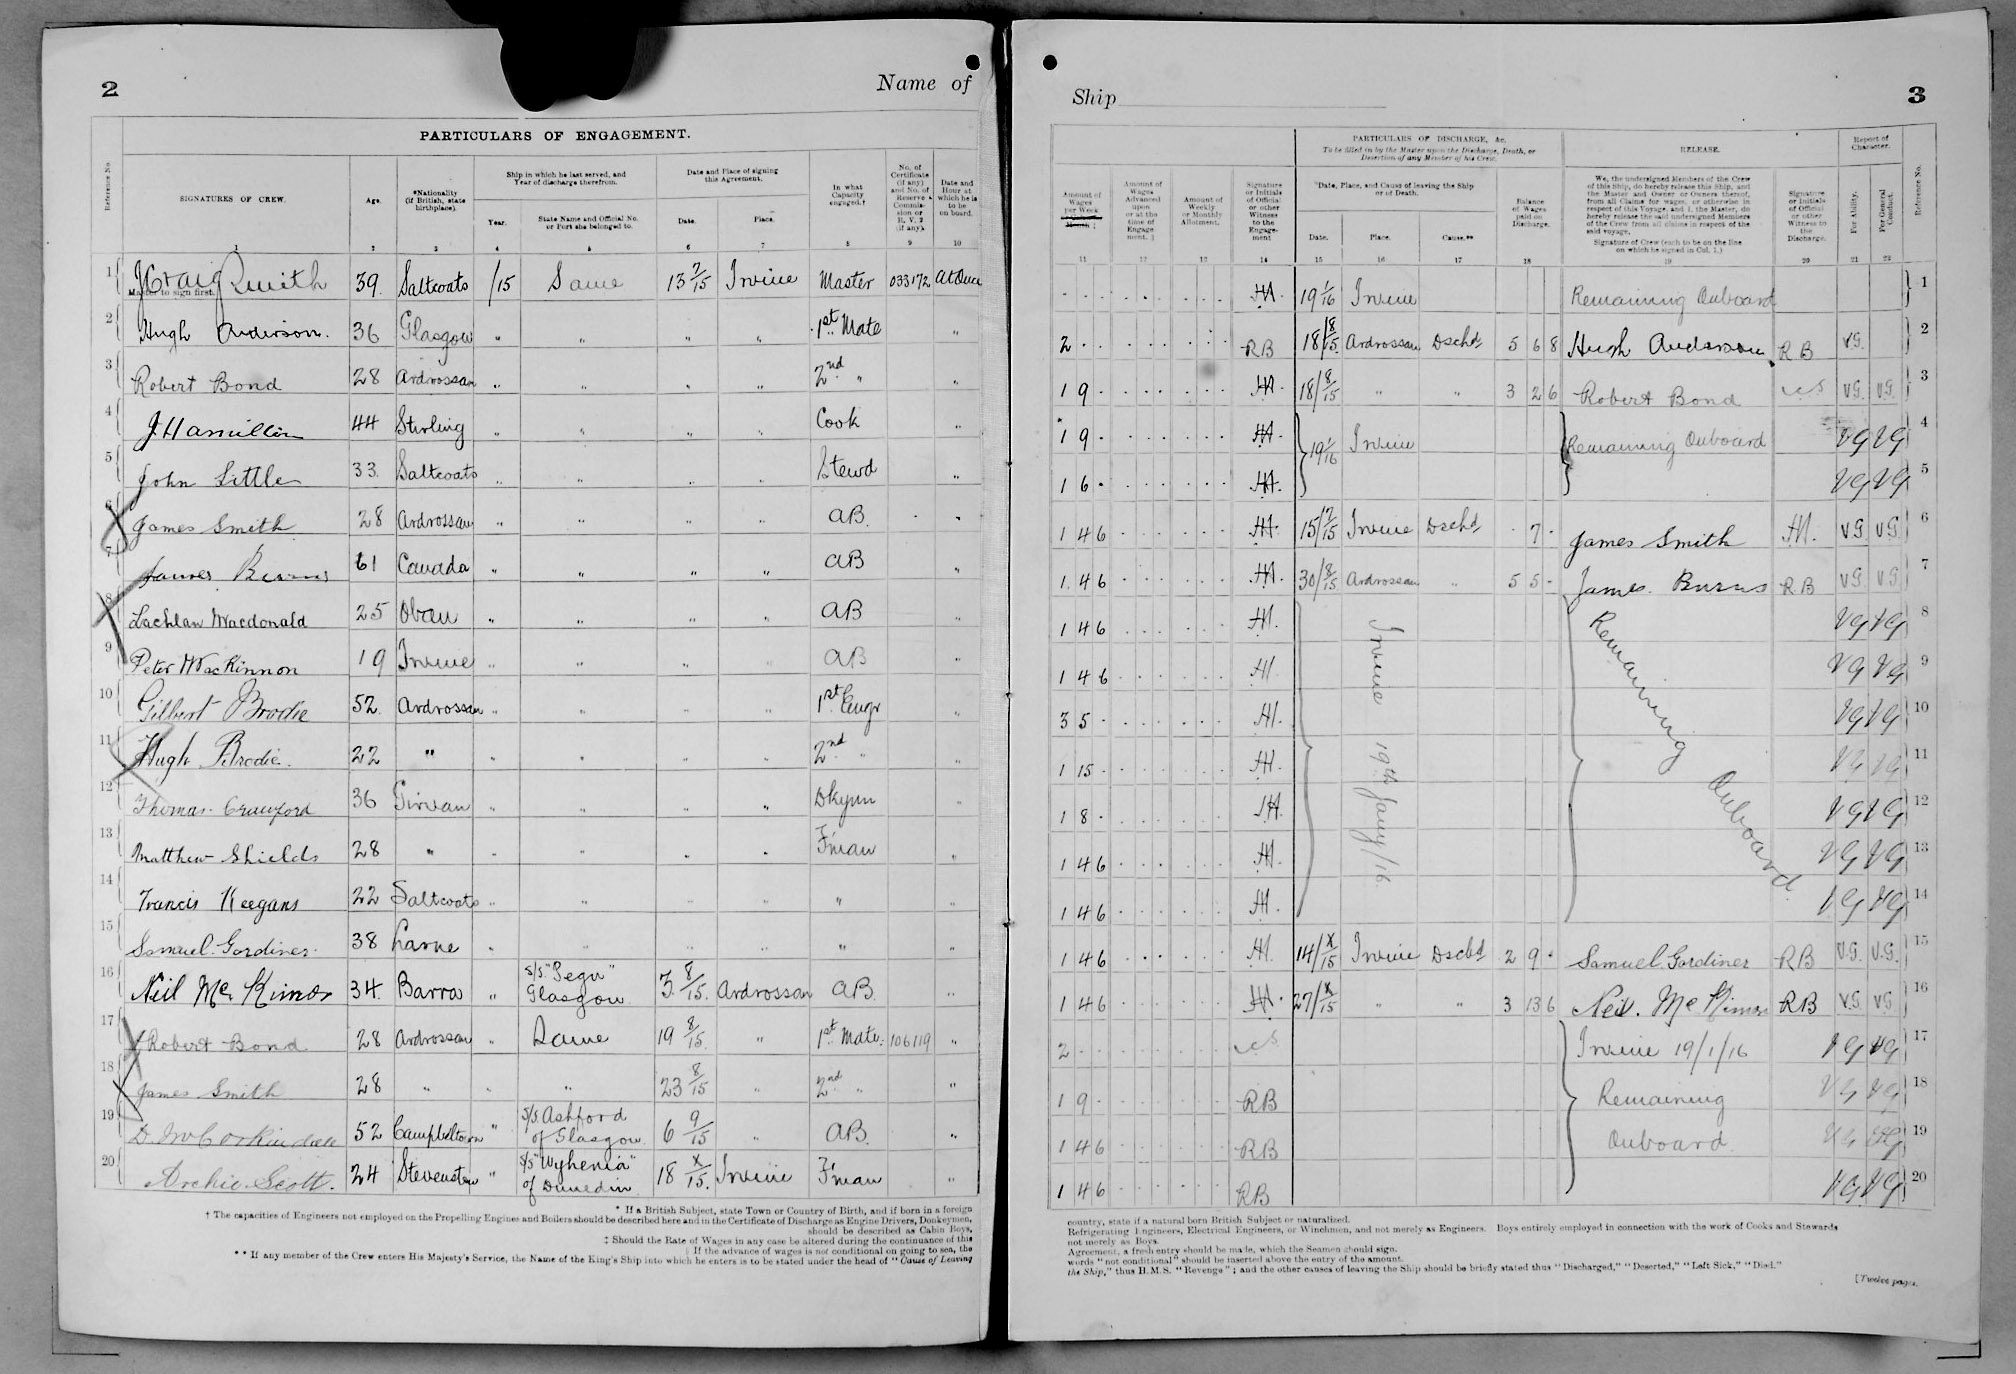 2
Name of
PARTICULARS OF ENGAGEMENT.
Reference No.
SIGNATURES OF CREW.
Age.
*Nationality (if British, state birthplace).
Ship in which he last served, and Year of discharge therefrom.
Year.
State Name and Official No. or Port she belonged to.
Date and Place of signing this Agreement.
Date.
Place.
In what Capacity engaged.†
No. of Certificate (if any) and No. of Reserve Commission or R. V. 2 (if any).
Date and Hour at which he is to be on board.
1 2 3 4 5 6 7 8 9 10
1 J Craig Smith 39. Saltcoats /15 Same 13 7/15 Irvine Master 033172 At Once
Master to sign first.
2 Hugh Anderson. 36 Glasgow " " " " 1st Mate "
3 Robert Bond 28 Ardrossan " " " " 2nd " "
4 J. Hamilton 44 Stirling " " " " Cook "
5 John Little 33. Saltcoats " " " " Stewd "
6 James Smith 28 Ardrossan " " " " AB. "
7 James Burns 61 Canada " " " " AB "
8 Lachlan Macdonald 25 Oban " " " " AB "
9 Peter MacKinnon 19 Irvine " " " " AB "
10 Gilbert Brodie 52. Ardrossan " " " " 1st Engr "
11 Hugh Brodie. 22 " " " " " 2nd " "
12 Thomas Crawford 36 Girvan " " " " Dkymn "
13 Matthew Shields 28 " " " " " F'man "
14 Francis Keegans 22 Saltcoats " " " " " "
15 Samuel Gardiner. 38 Larne " " " " " "
16 Neil Mc Kinnon 34. Barra " S/S "Pegu" Glasgow. 3. 8/15. Ardrossan AB. "
17 Robert Bond 28 Ardrossan " Same 19 8/15. " 1st Mate. 106119 "
18 James Smith 28 " " " 23 8/15 " 2nd " "
19 D. McCorkindale 52 Campbeltown " S/S. Ashford of Glasgow. 6 9/15 " AB. "
20 Archie Scott. 24 Stevenston " S/S "Wyhenia" of Dunedin 18 X/15. Irvine F'man "
* If a British Subject, state Town or Country of Birth, and if born in a foreign
† The capacities of Engineers not employed on the Propelling Engines and Boilers should be described here and in the Certificate of Discharge as Engine Drivers, Donkeymen,
should be described as Cabin Boys,
‡ Should the Rate of Wages in any case be altered during the continuance of this
If the advance of wages is not conditional on going to sea, the
** If any member of the Crew enters His Majesty's Service, the Name of the King's Ship into which he enters is to be stated under the head of "Cause of Leaving
Ship
3
PARTICULARS OF DISCHARGE, &c.
To be filled in by the Master upon the Discharge, Death, or Desertion of any Member of his Crew.
RELEASE.
Report of Character.
Reference No.
Amount of Wages per Week Month ‡
Amount of Wages Advanced upon or at the time of Engagement.
Amount of Weekly or Monthly Allotment.
Signature or Initials of Official or other Witness to the Engagement
*Date, Place, and Cause of leaving the Ship or of Death.
Date.
Place.
Cause.**
Balance of Wages paid on Discharge.
We, the undersigned Members of the Crew of this Ship, do hereby release this Ship, and the Master and Owner or Owners thereof, from all Claims for wages, or otherwise in respect of this Voyage, and I, the Master, do hereby release the said undersigned Members of the Crew from all claims in respect of the said voyage.
Signature of Crew (each to be on the line on which he signed in Col. 1.)
Signature or Initials of Official or other Witness to the Discharge.
For Ability.
For General Conduct.
11 12 13 14 15 16 17 18 19 20 21 22
HA. 19 1/16 Irvine Remaining Onboard 1
2 - - RB 18/8/15. Ardrossan Dschd 5 6 8 Hugh Anderson RB VG. 2
1 9 - HA. 18/8/15 " " 3 2 6 Robert Bond VG VG. 3
1 9 - HA. 19 1/16 Irvine Remaining Onboard VG VG 4
1 6 - HA. VG VG 5
1 4 6 HA. 15/7/15 Irvine Dschd - 7 - James Smith HA. VG VG. 6
1. 4 6 HA. 30/8/15 Ardrossan " 5 5 - James Burns RB VG VG. 7
1 4 6 HA. Irvine 19th Jany/16 Remaining Onboard VG VG 8
1 4 6 HA. VG VG 9
3 5 - HA. VG VG 10
1 15 - HA. VG VG 11
1 8 - HA. VG VG 12
1 4 6 HA. VG VG 13
1 4 6 HA. VG VG 14
1 4 6 HA. 14/X/15 Irvine Dschd 2 9 - Samuel Gardiner RB V.G. V.G. 15
1 4 6 HA. 27/X/15 " " 3 13 6 Neil Mc Kinnon RB VG VG. 16
2 - - Irvine 19/1/16 VG VG 17
1 9 - RB Remaining VG VG 18
1 4 6 RB Onboard. VG VG 19
1 4 6 RB VG VG 20
country, state if a natural born British Subject or naturalized.
Refrigerating Engineers, Electrical Engineers, or Winchmen, and not merely as Engineers. Boys entirely employed in connection with the work of Cooks and Stewards
not merely as Boys.
Agreement, a fresh entry should be made, which the Seamen should sign.
words "not conditional" should be inserted above the entry of the amount.
the Ship," thus H.M.S. "Revenge"; and the other causes of leaving the Ship should be briefly stated thus "Discharged," "Deserted," "Left Sick," "Died."
[Twelve pages.